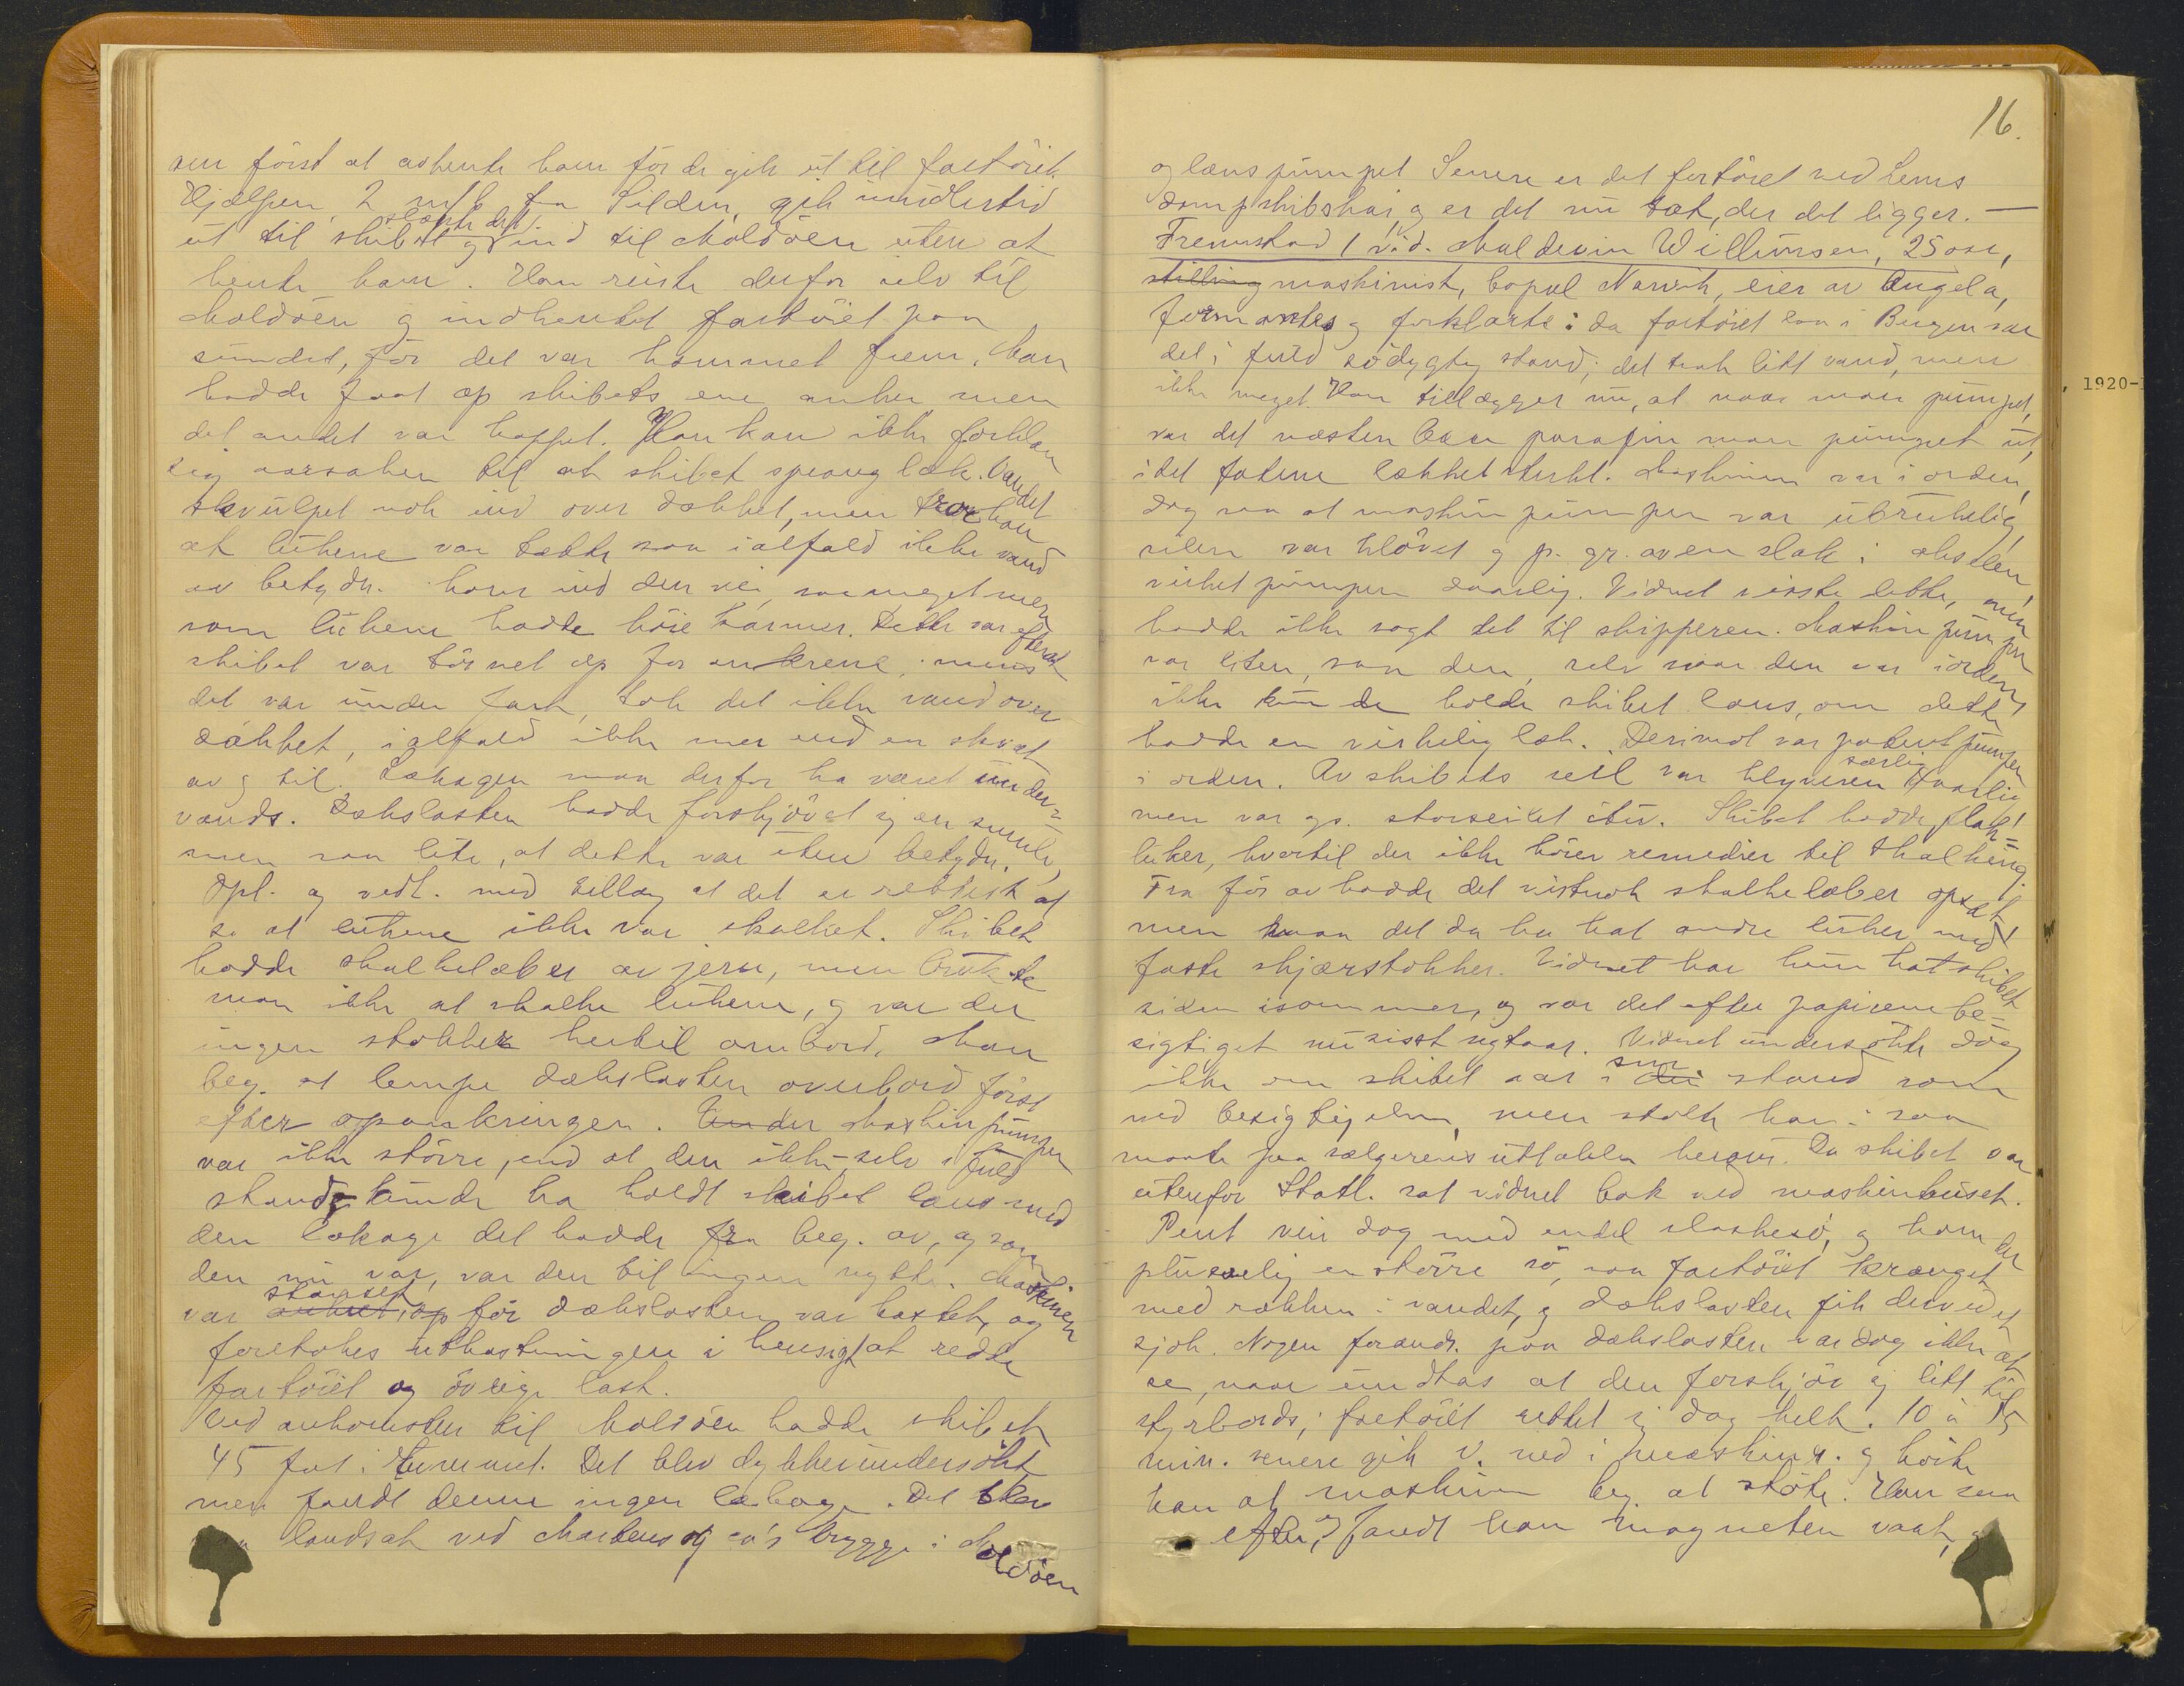 ren først at avhente ham før de gik ut til fartøiet.
Hjælpen, 2 m/k fra Silden, gik imidlertid
slæpte det
ut til skibet og ind til Moldøen uten at
hente ham. Han reiste derfor selv til
Moldøen og indhentet fartøiet paa
sundet, før det var kommet frem. Man
hadde faat op skibets ene anker men
det andet var kappet. Han kan ikke forklare
sig aarsaken til at skibet sprang læk. Vandet
skvulpet nok ind over dækket, men tror han
at lukene var tætte saa ialfald ikke vand
av betydn. kom ind den vei, saameget mer
som lukene hadde høie karmer. Dette var efterat
skibet var tørnet op for ankrene; mens
det var under fart, tok det ikke vand over
dækket, ialfald ikke mer end en skvæt
av og til. Lækagen maa derfor ha været under-
vands. Dækslasten hadde forskjøvet sig en smule,
men saa lite, at dette var uten betydn.
Opl. og vedt. med tillæg at det er rettest at
se at lukene ikke var skalket. Skibet
hadde skalkelaber av jern, men brukte
man ikke at skalke lukene, og var der
ingen stokker hertil ombord. Man
beg. at lempe dækslasten overbord først
efter opankringen. Under Maskinpumpen
var ikke større, end at den ikke selv i fuld
stand kunde ha holdt skibet læns med
den lækage det hadde fra beg. av, og som
den nu var, var den til ingen nytte. Maskinen
stanset
var ankret op før dækslasten var kastet, og
foretokes utkastningen i hensigt at redde
fartøiet og øvrige last.
Ved ankomsten til Moldøen hadde skibet
45 fat i rummet. Det blev dykkerundersøkt
men fandt denne ingen lækage. Det blev
landsat ved Martens og co's brygge i Moldøen
16.
og lænspumpet Senere er det fortøiet ved Lems
dampskibskai, og er det nu tæt, der det ligger. —
Fremstod 1 vid. Maldevin Willumsen, 25 aar,
stilling maskinist, bopæl Narvik, eier av Angela,
formantes og forklarte: da fartøiet laa i Bergen var
det i fuld sødygtig stand; det trak litt vand, men
ikke meget. Han tillægger nu, at naar man pumpet,
var det næsten bare parafin man pumpet ut,
idet fatene lækket sterkt. Maskinen var i orden,
dog saa at maskinpumpen var ubrukelig,
rilen var kløvet og p. gr. av en slak i akselen,
virket pumpen daarlig. Vidnet visste dette, men
hadde ikke sagt det til skipperen. Maskinpumpen
var liten, saa den, selv naar den var iorden,
ikke kunde holde skibet læns, om dette
hadde en virkelig læk. Derimot var patentpumpen
særlig
i orden. Av skibets seil var klyveren daarlig
men var gs. storseilet itu. Skibet hadde flak-
luker, hvortil der ikke hører remedier til skalking.
Fra før av hadde det vistnok skalkelaber opsat
men maa det da ha hat andre luker med
faste skjærstokker. Vidnet har kun hat skibet
siden isommer, og var det efter papirene be-
sigtiget nu sisst nytaar. Vidnet undersøkte dog
sm
ikke om skibet var i den stand som
ved besigtigelsen, men stolte han i saa
maate paa sælgerens uttalelser herom. Da skibet var
utenfor Statl. sat vidnet bak ved maskinhuset.
Pent veir dog med endel slaskesø, og kom der
pludselig en større sø, saa fartøiet krænget
med rækken i vandet, og dækslasten fik derved et
sjok. Nogen forandr. paa dækslasten var dog ikke at
se, naar undtas at den forskjøv sig litt til
styrbords; fartøiet rettet sig dog helt. 10 à 15
min. senere gik v. ned i maskinr. og hørte
han at maskinen beg. at støte. Han saa
efter, og fandt han magneten vaat,